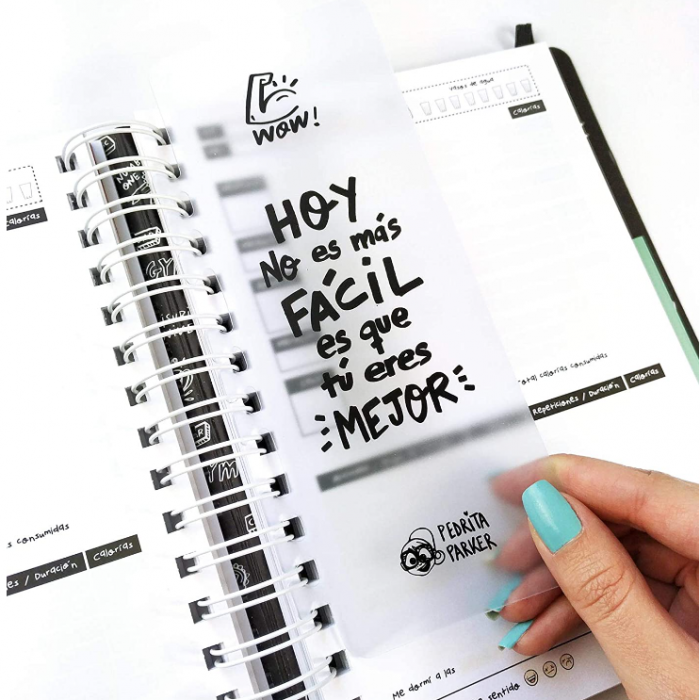 vasos de agua
Calorías
Calorías
WOW!
HOY
No es más
FÁCiL
es que
tú eres
MEJOR
PEDRITA
PARKER
total calorías consumidas
Repeticiones / Duración
Calorías
s consumidas
es / Duración
Calorías
Me dormí a las
e sentido